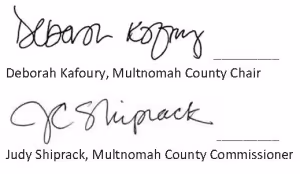 Deborah Kafoury
Deborah Kafoury, Multnomah County Chair
JC Shiprack
Judy Shiprack, Multnomah County Commissioner